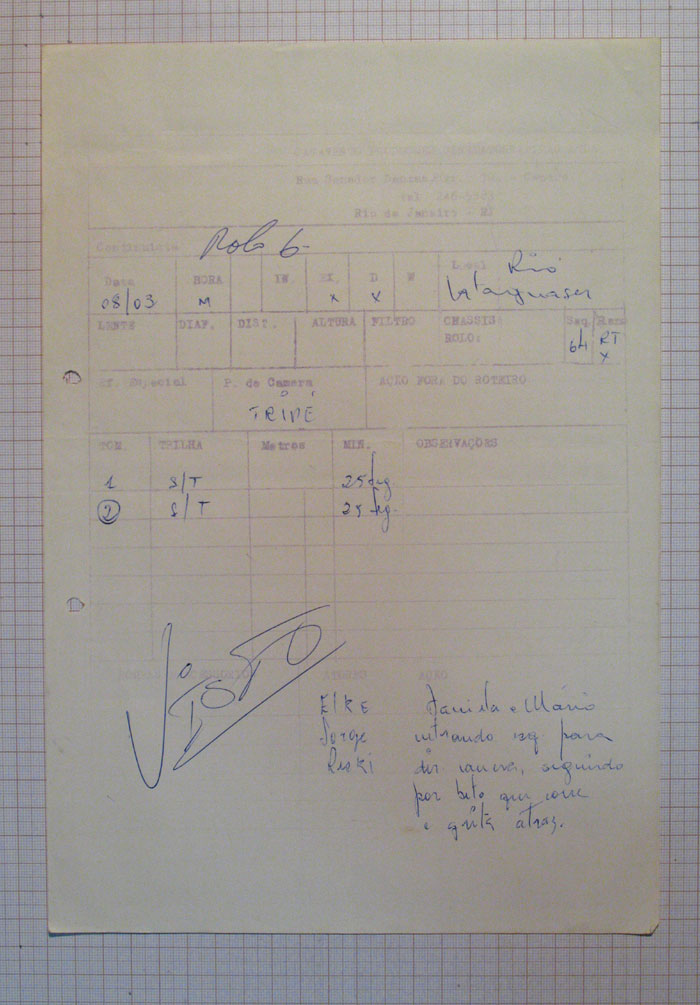 Rua Senador Dantas
tel 246-
Rio de Janeiro - RJ
Continuista Rolo 6
Data HORA IN. EX. D N Local Rio
08/03 M x x
LENTE DIAF. DIST. ALTURA FILTRO CHASSIS: Seq.
ROLO: 64 RT
x
Ef. Especial P. de Camera AÇÃO FORA DO ROTEIRO
TRIPÉ
TOM. TRILHA Metros MIN. OBSERVAÇÕES
1 S/T 25 seg
2 S/T 25 seg.
VISTO
ATORES AÇÃO
Elke Daniela e Mário
Jorge entrando esq. para
dir. seguindo
por beto que corre
e grita atraz.